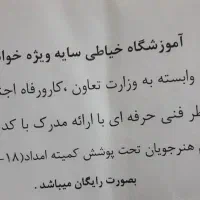 آموزشگاه خیاطی سایه ویژه
وابسته به وزارت تعاون ،کارورفاه
فنی حرفه ای با ارائه مدرک با کد
هنرجویان تحت پوشش کمیته امداد(۱۸-
بصورت رایگان میباشد .